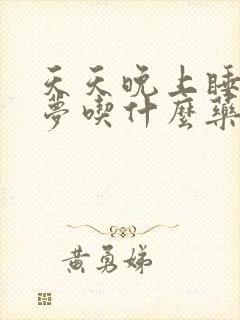 天天晚上睡
夢喫什麼藥
黃勇娣